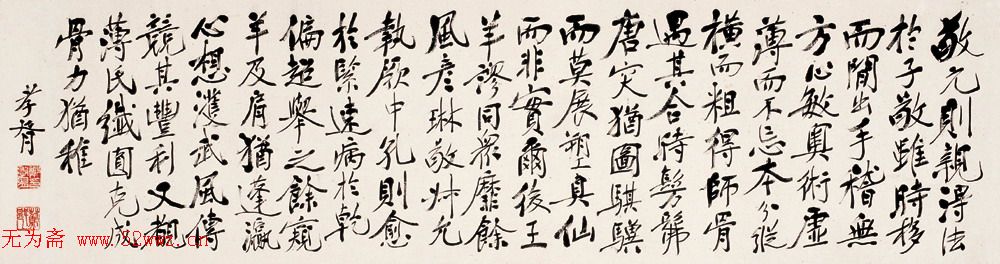 敬元則親得法
於子敬雖時移
而間出手稽無
方心敏奧術虛
薄而不忘本分縱
橫而粗得師骨
遇其合時髣髴
唐突猶圖騏驥
而莫展塑真仙
而非實爾後王
羊謬同眾靡餘
風彥琳敬叔允
執厥中孔則愈
於緊速病於乾
偏超舉之餘窺
羊及肩猶蓬瀛
心想濩武風儔
競其豐利又觀
薄氏纖圓克成
骨力猶稚
孝胥
无为斋 www.82wwz.cn